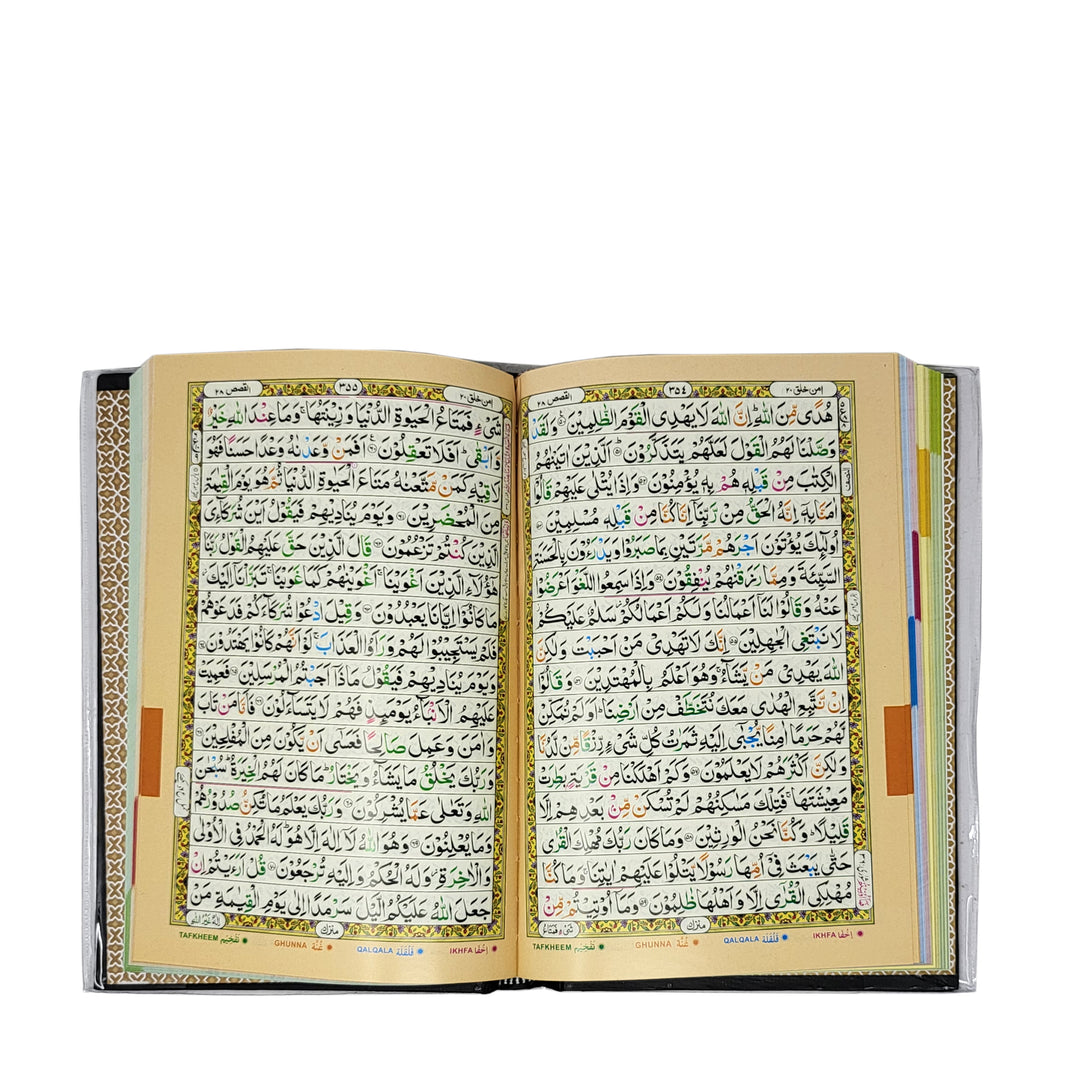 اَمَّنْ خَلَقَ ٢٠
٣٥٤
اَلْقَصَص ٢٨
هُدًى مِّنَ اللّٰهِ ؕ اِنَّ اللّٰهَ لَا يَهْدِى الْقَوْمَ الظّٰلِمِيْنَ ۞ وَلَقَدْ
وَصَّلْنَا لَهُمُ الْقَوْلَ لَعَلَّهُمْ يَتَذَكَّرُوْنَ ۞ اَلَّذِيْنَ اٰتَيْنٰهُمُ
الْكِتٰبَ مِنْ قَبْلِهٖ هُمْ بِهٖ يُؤْمِنُوْنَ ۞ وَاِذَا يُتْلٰى عَلَيْهِمْ قَالُوْۤا
اٰمَنَّا بِهٖۤ اِنَّهُ الْحَقُّ مِنْ رَّبِّنَاۤ اِنَّا كُنَّا مِنْ قَبْلِهٖ مُسْلِمِيْنَ ۞
اُولٰٓئِكَ يُؤْتَوْنَ اَجْرَهُمْ مَّرَّتَيْنِ بِمَا صَبَرُوْا وَيَدْرَءُوْنَ بِالْحَسَنَةِ
السَّيِّئَةَ وَمِمَّا رَزَقْنٰهُمْ يُنْفِقُوْنَ ۞ وَاِذَا سَمِعُوا اللَّغْوَ اَعْرَضُوْا
عَنْهُ وَقَالُوْا لَنَاۤ اَعْمَالُنَا وَلَكُمْ اَعْمَالُكُمْ سَلٰمٌ عَلَيْكُمْ
لَا نَبْتَغِى الْجٰهِلِيْنَ ۞ اِنَّكَ لَا تَهْدِىْ مَنْ اَحْبَبْتَ وَلٰكِنَّ
اللّٰهَ يَهْدِىْ مَنْ يَّشَآءُ ۚ وَهُوَ اَعْلَمُ بِالْمُهْتَدِيْنَ ۞ وَقَالُوْۤا
اِنْ نَّتَّبِعِ الْهُدٰى مَعَكَ نُتَخَطَّفْ مِنْ اَرْضِنَا ؕ اَوَلَمْ نُمَكِّنْ
لَّهُمْ حَرَمًا اٰمِنًا يُّجْبٰۤى اِلَيْهِ ثَمَرٰتُ كُلِّ شَىْءٍ رِّزْقًا مِّنْ لَّدُنَّا
وَلٰكِنَّ اَكْثَرَهُمْ لَا يَعْلَمُوْنَ ۞ وَكَمْ اَهْلَكْنَا مِنْ قَرْيَةٍۭ بَطِرَتْ
مَعِيْشَتَهَا ۚ فَتِلْكَ مَسٰكِنُهُمْ لَمْ تُسْكَنْ مِّنْۢ بَعْدِهِمْ اِلَّا
قَلِيْلًا ؕ وَكُنَّا نَحْنُ الْوٰرِثِيْنَ ۞ وَمَا كَانَ رَبُّكَ مُهْلِكَ الْقُرٰى
حَتّٰى يَبْعَثَ فِىْۤ اُمِّهَا رَسُوْلًا يَّتْلُوْا عَلَيْهِمْ اٰيٰتِنَا ۚ وَمَا كُنَّا
مُهْلِكِى الْقُرٰٓى اِلَّا وَاَهْلُهَا ظٰلِمُوْنَ ۞ وَمَاۤ اُوْتِيْتُمْ مِّنْ
منزل
شَىْءٍ فَمَتَاعُ
IKHFA اِخْفَا QALQALA قَلْقَلَه GHUNNA غُنَّه TAFKHEEM تَفْخِيْم
اَمَّنْ خَلَقَ ٢٠
٣٥٥
اَلْقَصَص ٢٨
شَىْءٍ فَمَتَاعُ الْحَيٰوةِ الدُّنْيَا وَزِيْنَتُهَا ۚ وَمَا عِنْدَ اللّٰهِ خَيْرٌ
وَّاَبْقٰى ؕ اَفَلَا تَعْقِلُوْنَ ۞ اَفَمَنْ وَّعَدْنٰهُ وَعْدًا حَسَنًا فَهُوَ
لَاقِيْهِ كَمَنْ مَّتَّعْنٰهُ مَتَاعَ الْحَيٰوةِ الدُّنْيَا ثُمَّ هُوَ يَوْمَ الْقِيٰمَةِ
مِنَ الْمُحْضَرِيْنَ ۞ وَيَوْمَ يُنَادِيْهِمْ فَيَقُوْلُ اَيْنَ شُرَكَآءِىَ
الَّذِيْنَ كُنْتُمْ تَزْعُمُوْنَ ۞ قَالَ الَّذِيْنَ حَقَّ عَلَيْهِمُ الْقَوْلُ رَبَّنَا
هٰۤؤُلَآءِ الَّذِيْنَ اَغْوَيْنَا ۚ اَغْوَيْنٰهُمْ كَمَا غَوَيْنَا ۚ تَبَرَّاْنَاۤ اِلَيْكَ
مَا كَانُوْۤا اِيَّانَا يَعْبُدُوْنَ ۞ وَقِيْلَ ادْعُوْا شُرَكَآءَكُمْ فَدَعَوْهُمْ
فَلَمْ يَسْتَجِيْبُوْا لَهُمْ وَرَاَوُا الْعَذَابَ ۚ لَوْ اَنَّهُمْ كَانُوْا يَهْتَدُوْنَ ۞
وَيَوْمَ يُنَادِيْهِمْ فَيَقُوْلُ مَاذَاۤ اَجَبْتُمُ الْمُرْسَلِيْنَ ۞ فَعَمِيَتْ
عَلَيْهِمُ الْاَنْۢبَآءُ يَوْمَئِذٍ فَهُمْ لَا يَتَسَآءَلُوْنَ ۞ فَاَمَّا مَنْ تَابَ
وَاٰمَنَ وَعَمِلَ صَالِحًا فَعَسٰٓى اَنْ يَّكُوْنَ مِنَ الْمُفْلِحِيْنَ ۞
وَرَبُّكَ يَخْلُقُ مَا يَشَآءُ وَيَخْتَارُ ؕ مَا كَانَ لَهُمُ الْخِيَرَةُ ؕ سُبْحٰنَ
اللّٰهِ وَتَعٰلٰى عَمَّا يُشْرِكُوْنَ ۞ وَرَبُّكَ يَعْلَمُ مَا تُكِنُّ صُدُوْرُهُمْ
وَمَا يُعْلِنُوْنَ ۞ وَهُوَ اللّٰهُ لَاۤ اِلٰهَ اِلَّا هُوَ ؕ لَهُ الْحَمْدُ فِى الْاُوْلٰى
وَالْاٰخِرَةِ وَلَهُ الْحُكْمُ وَاِلَيْهِ تُرْجَعُوْنَ ۞ قُلْ اَرَءَيْتُمْ اِنْ
جَعَلَ اللّٰهُ عَلَيْكُمُ الَّيْلَ سَرْمَدًا اِلٰى يَوْمِ الْقِيٰمَةِ مَنْ
منزل
IKHFA اِخْفَا QALQALA قَلْقَلَه GHUNNA غُنَّه TAFKHEEM تَفْخِيْم